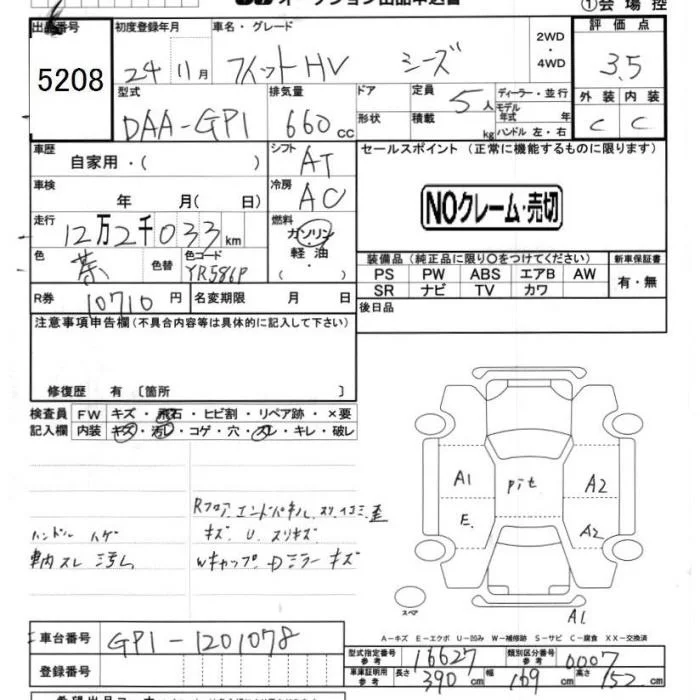 ①会場控
出品番号 初度登録年月 車名・グレード 2WD・4WD 評価点
5208 24 11月 フィットHV シーズ 3.5
型式 排気量 ドア 定員 5人 ディーラー・並行 外装 内装
DAA-GP1 660cc 形状 積載 kg モデル年式 年 ハンドル 左・右 C C
車歴 自家用・( ) シフト AT セールスポイント (正常に機能するものに限ります)
車検 年 月( 日) 冷房 AC
NOクレーム・売切
走行 12万2千033km 燃料 ガソリン・軽油・( )
色 茶 色替 色コード YR586P
装備品 (純正品に限り○をつけてください) 新車保証書
PS PW ABS エアB AW 有・無
SR ナビ TV カワ
R券 10710円 名変期限 月 日 後日品
注意事項申告欄(不具合内容等は具体的に記入して下さい)
修復歴 有〔箇所 〕
検査員 FW キズ・飛石・ヒビ割・リペア跡・×要
記入欄 内装 キズ・汚レ・コゲ・穴・スレ・キレ・破レ
A1 pit A2
E A2
Rフロア、エンドパネル
ハンドル ハゲ キズ U スリキズ
車内スレ 汚レ Wキャップ Dミラー キズ
スペア A1
A-キズ E-エクボ U-凹み W-補修跡 S-サビ C-腐食 XX-交換済
車台番号 GP1-1201078
型式指定番号 参考 16627 類別区分番号 参考 0007
登録番号 車庫証明用 参考 長さ 390cm 幅 169cm 高さ 152cm